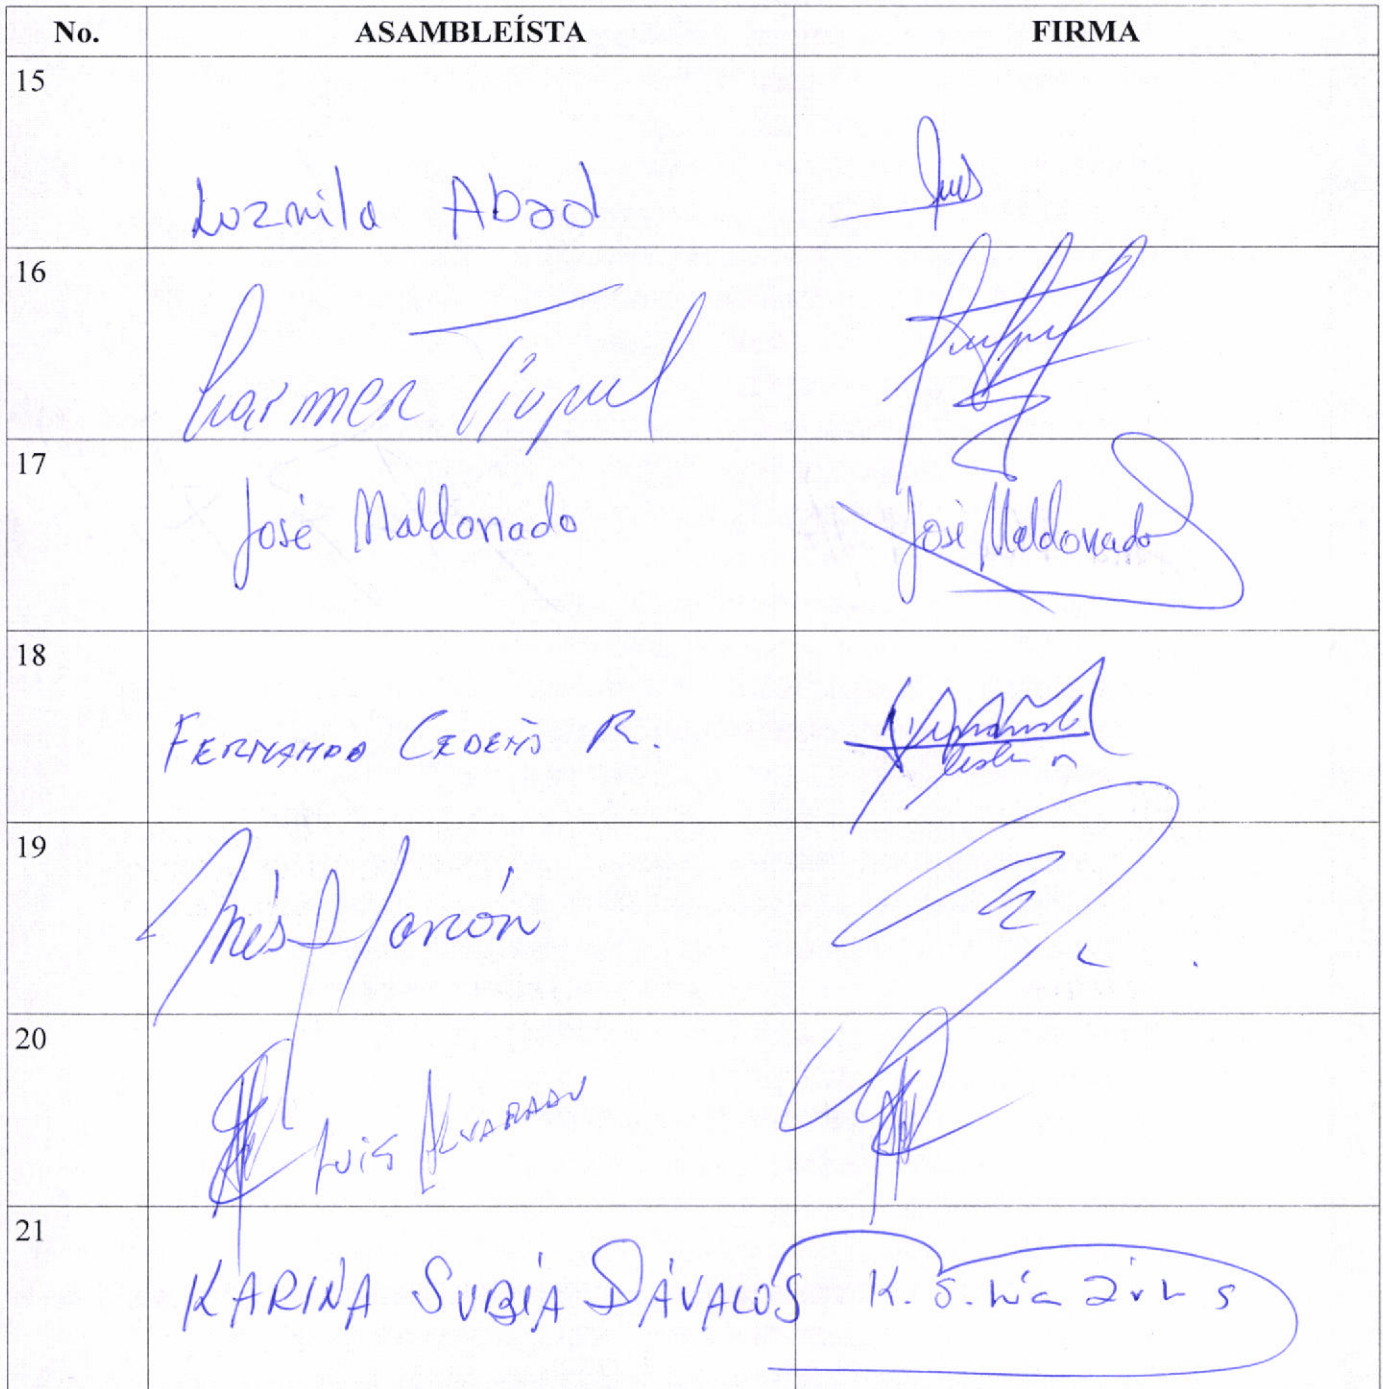 No. ASAMBLEÍSTA FIRMA
15
Luzmila Abad
16
Carmen Tiupul
17
José Maldonado José Maldonado
18
FERNANDO CEDEÑO R.
19
Inés Alarcón
20
LUIS ALVARADO
21
KARINA SUBÍA DÁVALOS